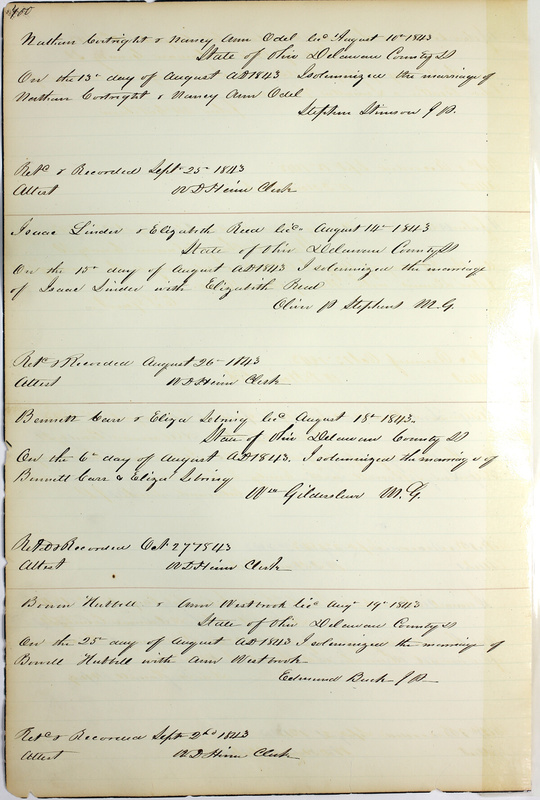 400
Nathan Cortright & Nancy Ann Odel lic August 10th 1843
State of Ohio Delaware County SS
On the 13th day of August AD 1843 I solemnized the marriage of
Nathan Cortright & Nancy Ann Odel
Stephen Stimson J P.
Retd & Recorded Sept 25th 1843
Attest W D Heim Clerk
Isaac Linder & Elizabeth Reed licn August 14th 1843
State of Ohio Delaware County SS
On the 15th day of August AD 1843 I solemnized the marriage
of Isaac Linder with Elizabeth Reed
Oliver P Stephens M. G.
Retd & Recorded August 26th 1843
Attest W D Heim Clerk
Bennett Carr & Eliza Sebring licd August 18th 1843.
State of Ohio Delaware County SS
On the 6th day of August AD 1843. I solemnized the marriage of
Bennett Carr & Eliza Sebring
Wm Gildersleve M. G.
Retd & Recorded Oct 27th 1843
Attest W D Heim Clerk
Bowen Hubbell & Ann Westbrook licd Augt 19th 1843
State of Ohio Delaware County SS
On the 25th day of August AD 1843 I solemnized the marriage of
Bowell Hubbell with Ann Westbrook
Edmund Buck J P
Retd & Recorded Sept 2nd 1843
Attest W D Heim Clerk